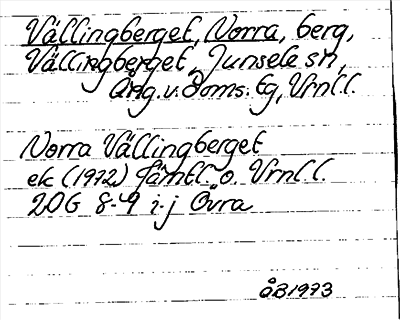 Vällingberget, Norra, berg,
Vällingberget, Junsele sn,
Ång. v. doms. tg, Vrnl l.
Norra Vällingberget
ek (1972) Jämtl. o. Vrnl l.
20G 8-9 i-j Övra
ÅB1973